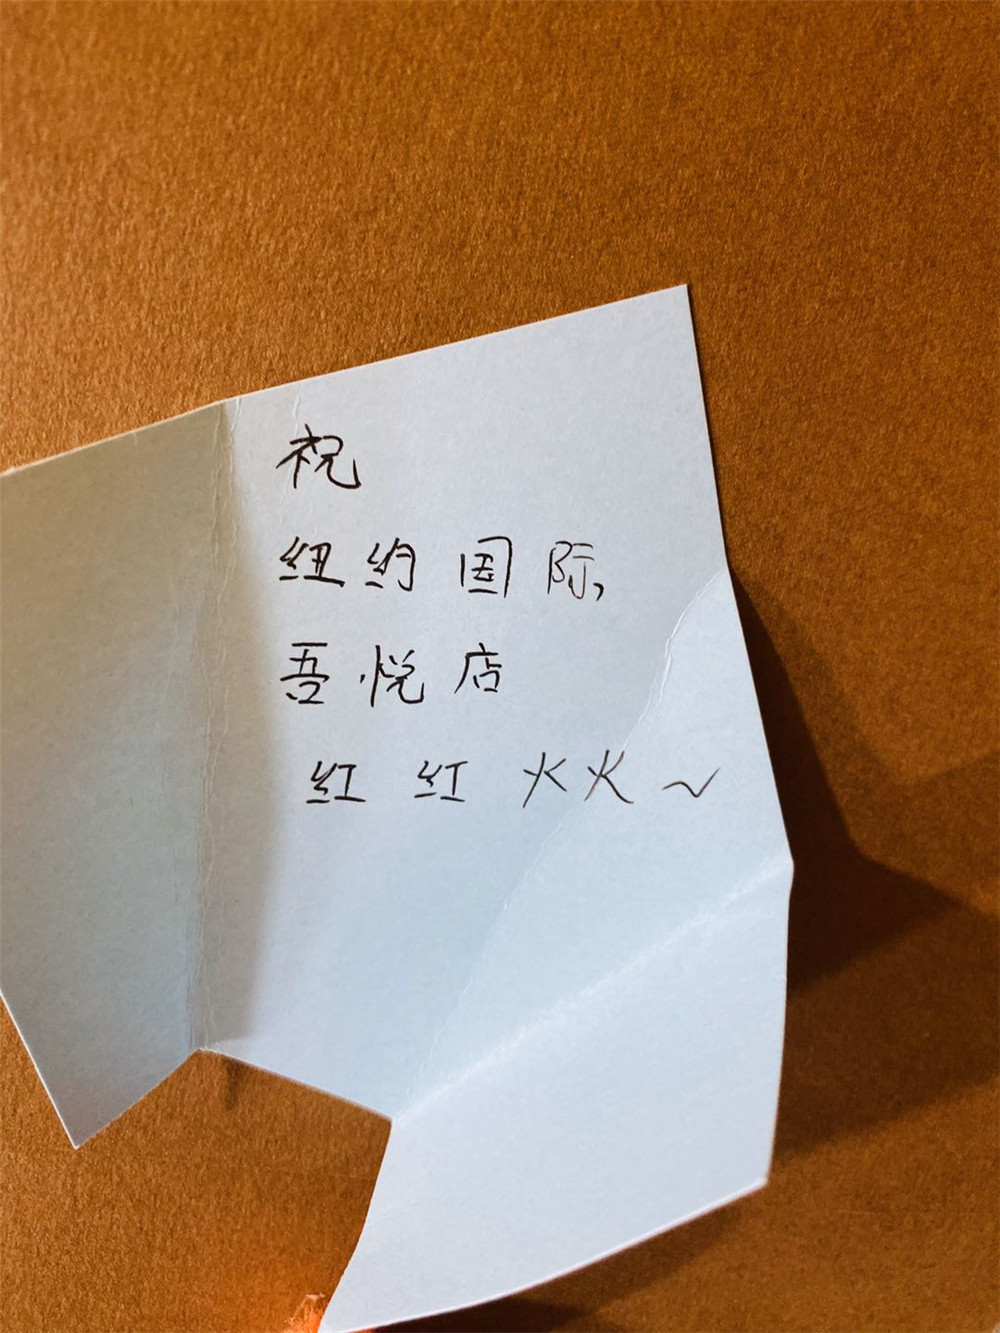 祝
纽约国际,
吾悦店
红红火火~